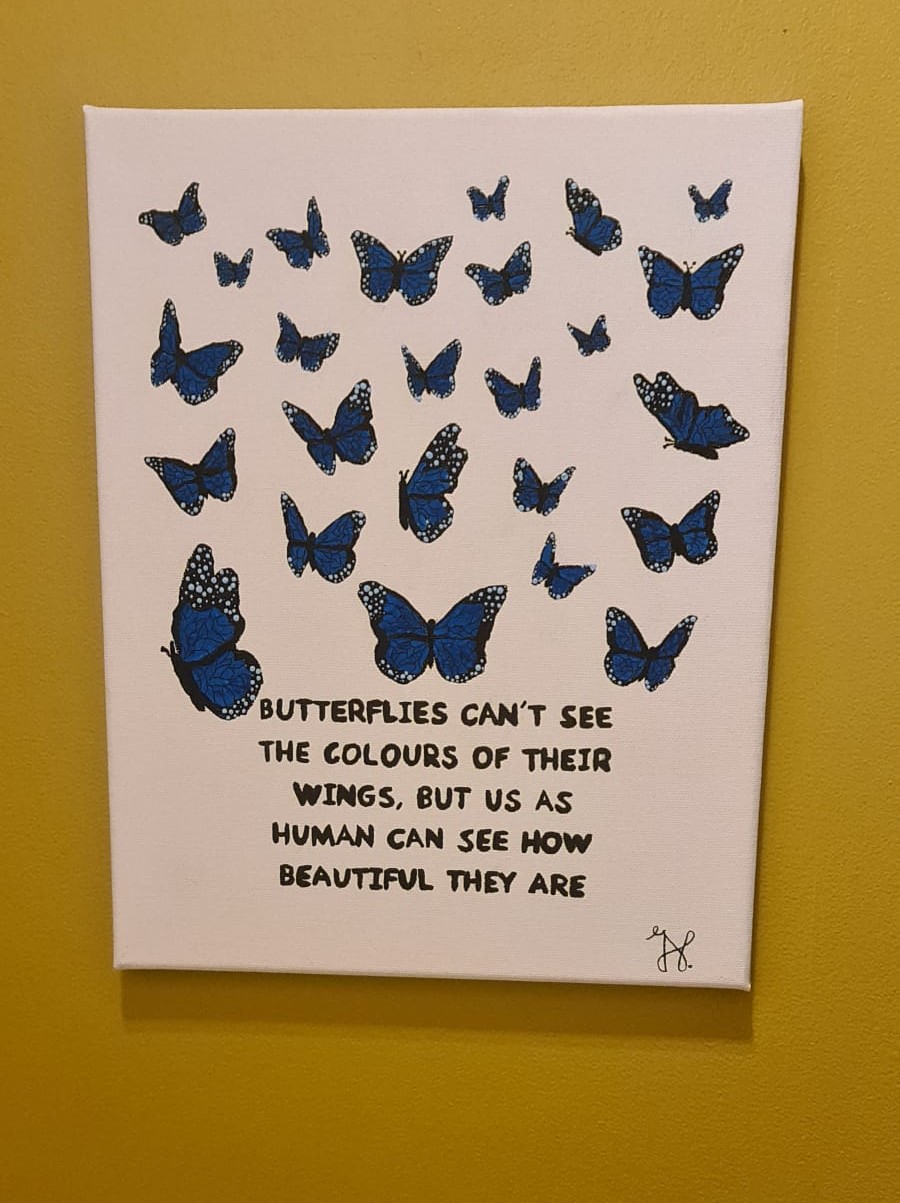 BUTTERFLIES CAN'T SEE
THE COLOURS OF THEIR
WINGS, BUT US AS
HUMAN CAN SEE HOW
BEAUTIFUL THEY ARE